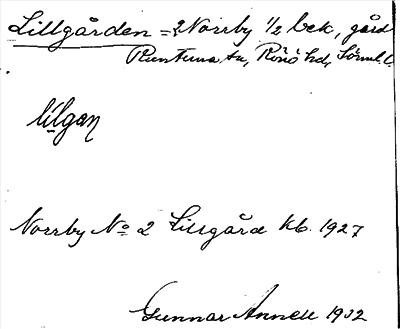 Lillgården = 2 Norrby 1/2 bek, gård
Runtuna sn, Rönö hd, Sörml. l.
lilgan
Norrby No 2 Lillgård kb. 1927
Gunnar Annell 1932